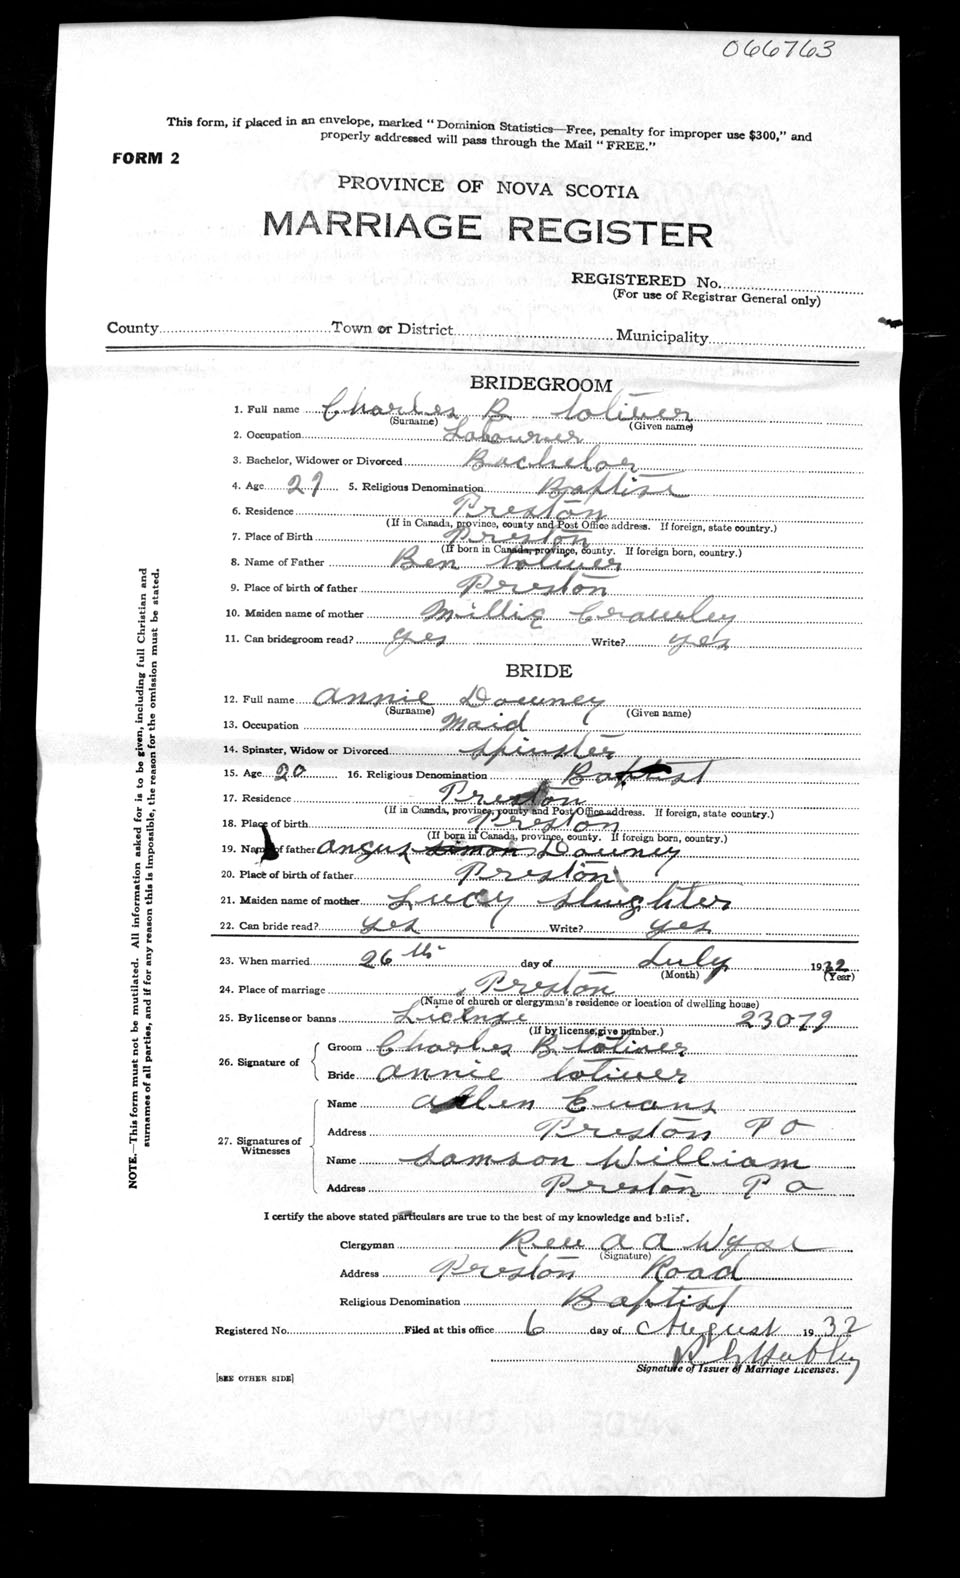 066763
This form, if placed in an envelope, marked "Dominion Statistics—Free, penalty for improper use $300," and
properly addressed will pass through the Mail "FREE."
FORM 2
PROVINCE OF NOVA SCOTIA
MARRIAGE REGISTER
REGISTERED No.
(For use of Registrar General only)
County Town or District Municipality
BRIDEGROOM
1. Full name Charles B
(Surname) (Given name)
2. Occupation Labourer
3. Bachelor, Widower or Divorced Bachelor
4. Age 27 5. Religious Denomination Baptist
6. Residence Preston
(If in Canada, province, county and Post Office address. If foreign, state country.)
7. Place of Birth Preston
(If born in Canada, province, county. If foreign born, country.)
8. Name of Father Ben
9. Place of birth of father Preston
10. Maiden name of mother Millie Crawley
11. Can bridegroom read? yes Write? yes
BRIDE
12. Full name Annie Downey
(Surname) (Given name)
13. Occupation Maid
14. Spinster, Widow or Divorced Spinster
15. Age 20 16. Religious Denomination Baptist
17. Residence Preston
(If in Canada, province, county and Post Office address. If foreign, state country.)
18. Place of birth Preston
(If born in Canada, province, county. If foreign born, country.)
19. Name of father Angus Simon Downey
20. Place of birth of father Preston
21. Maiden name of mother Lucy Slughter
22. Can bride read? yes Write? yes
23. When married 26 th day of July 1932
(Month) (Year)
24. Place of marriage Preston
(Name of church or clergyman's residence or location of dwelling house)
25. By license or banns License 23079
(If by license, give number.)
26. Signature of Groom Charles B
Bride Annie
27. Signatures of Witnesses
Name Allen Evans
Address Preston P O
Name Samson William
Address Preston P O
I certify the above stated particulars are true to the best of my knowledge and belief.
Clergyman Rev A A Wyse
(Signature)
Address Preston Road
Religious Denomination Baptist
Registered No. Filed at this office 6 day of August 1932
Signature of Issuer of Marriage Licenses.
[SEE OTHER SIDE]
NOTE.—This form must not be mutilated. All information asked for is to be given, including full Christian and
surnames of all parties, and if for any reason this is impossible, the reason for the omission must be stated.